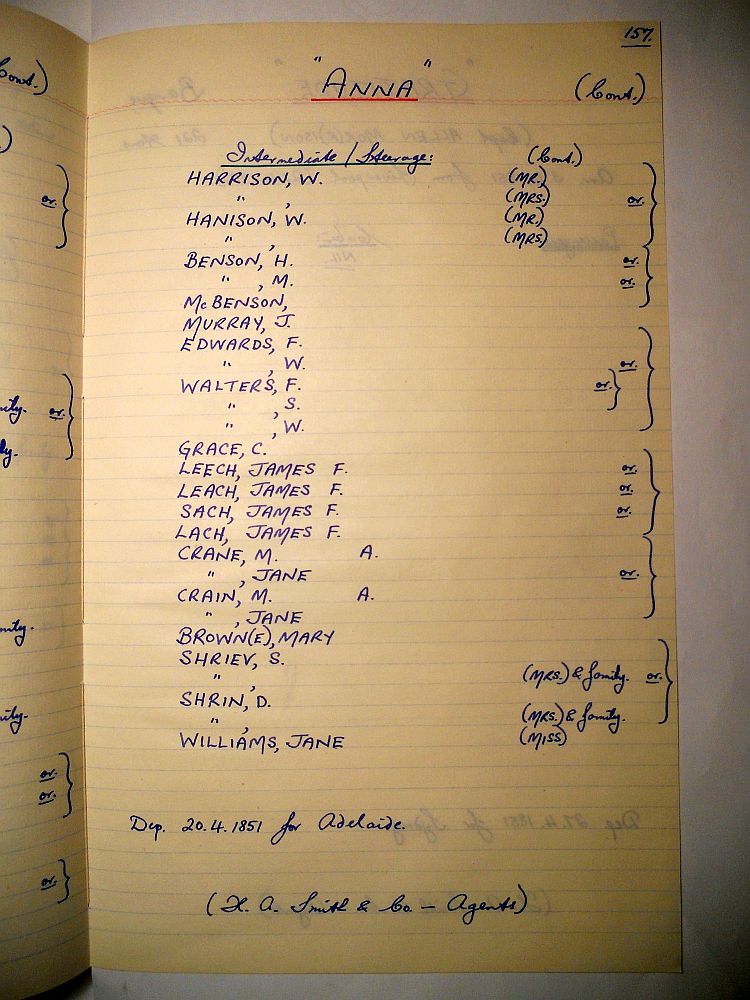 157.
"ANNA" (Cont.)
Intermediate / Steerage: (Cont.)
HARRISON, W. (MR.)
" , (MRS.) or.
HANISON, W. (MR.)
" , (MRS.)
BENSON, H. or.
" , M. or.
McBENSON,
MURRAY, J.
EDWARDS, F.
" , W. or.
WALTERS, F. or.
" , S.
" , W.
GRACE, C.
LEECH, JAMES F. or.
LEACH, JAMES F. or.
SACH, JAMES F. or.
LACH, JAMES F.
CRANE, M. A.
" , JANE or.
CRAIN, M. A.
" , JANE
BROWN(E), MARY
SHRIEV, S.
" , (MRS.) & family. or.
SHRIN, D.
" , (MRS.) & family.
WILLIAMS, JANE (MISS)
Dep. 20.4.1851 for Adelaide.
(H. A. Smith & Co. — Agents)